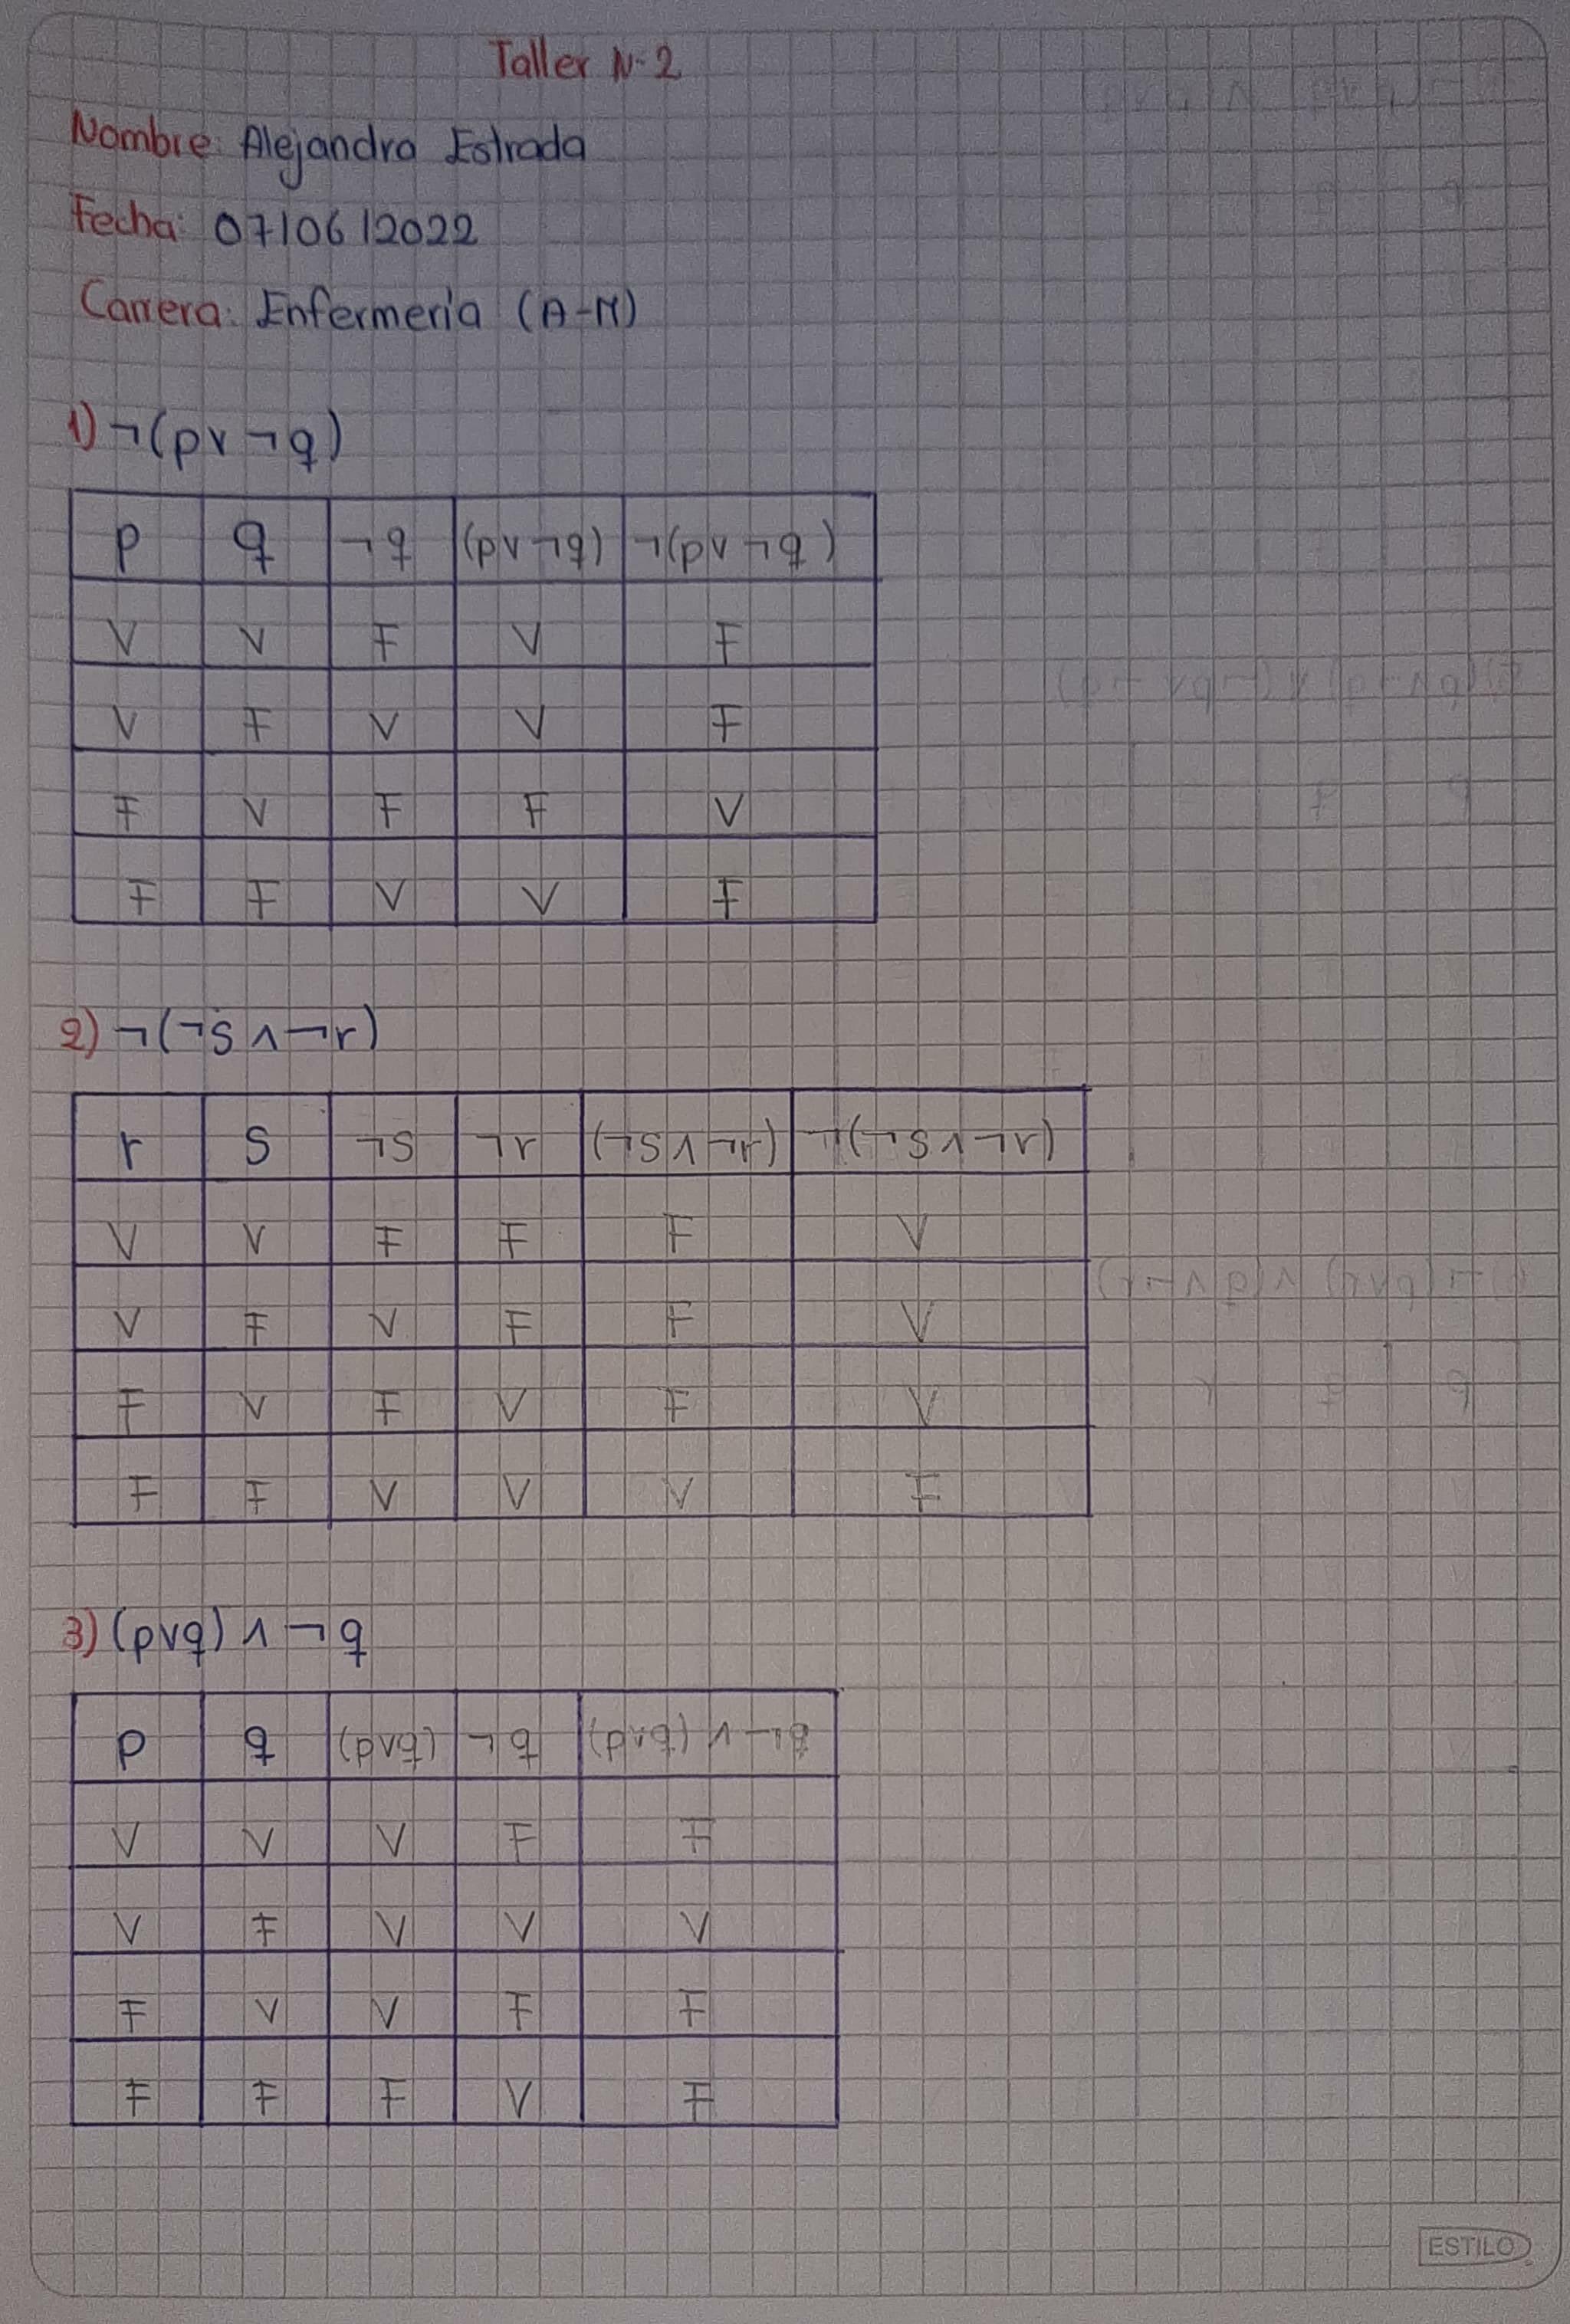 Taller N-2
Nombre: Alejandra Estrada
Fecha: 07/06/2022
Carrera: Enfermería (A-M)
1) ¬(p∨¬q)
p q ¬q (p∨¬q) ¬(p∨¬q)
V V F V F
V F V V F
F V F F V
F F V V F
2) ¬(¬s∧¬r)
r s ¬s ¬r (¬s∧¬r) ¬(¬s∧¬r)
V V F F F V
V F V F F V
F V F V F V
F F V V V F
3) (p∨q)∧¬q
p q (p∨q) ¬q (p∨q)∧¬q
V V V F F
V F V V V
F V V F F
F F F V F
ESTILO